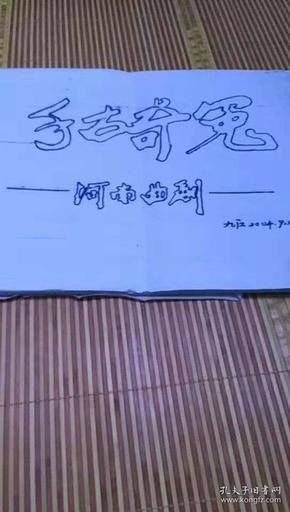 千古奇冤
河南曲剧
九江 2004.9.
孔夫子旧书网
www.kongfz.com